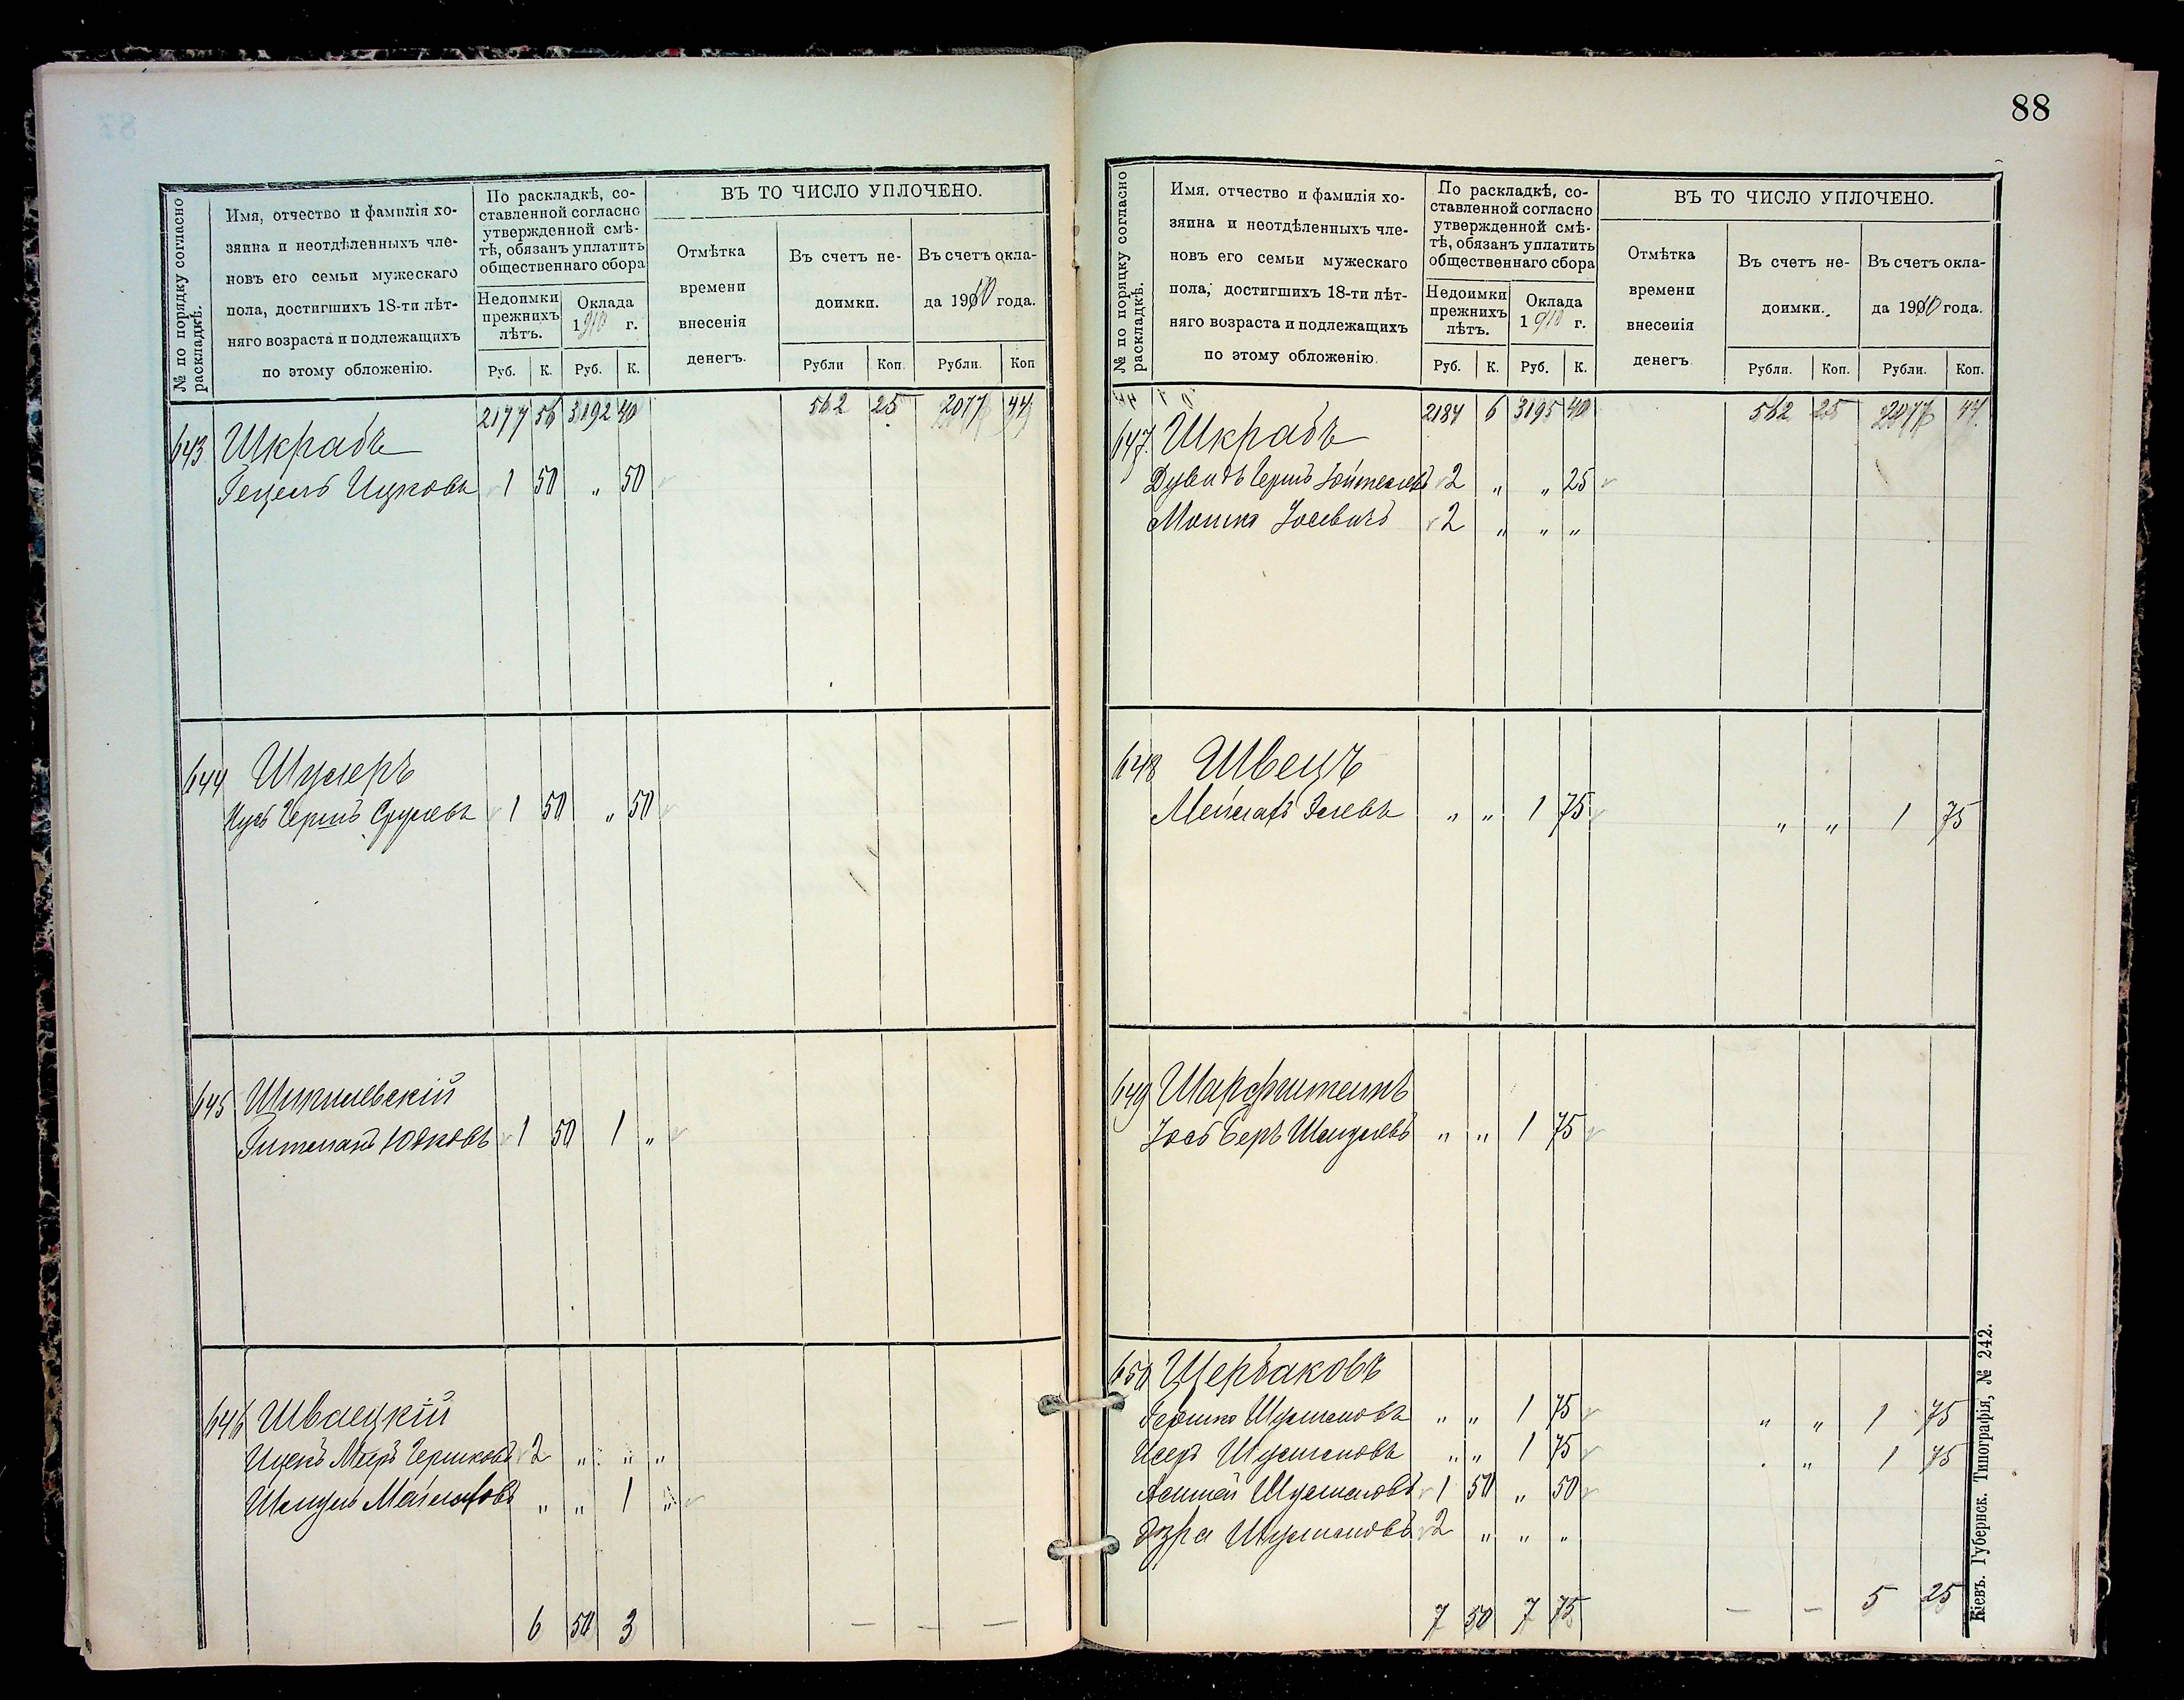 88
№ по порядку согласно раскладкѣ.
Имя, отчество и фамилія хо-
зяина и неотдѣленныхъ чле-
новъ его семьи мужескаго
пола, достигшихъ 18-ти лѣт-
няго возраста и подлежащихъ
по этому обложенію.
По раскладкѣ, со-
ставленной согласно
утвержденной смѣ-
тѣ, обязанъ уплатить
общественнаго сбора
Недоимки прежнихъ лѣтъ.
Оклада 1910 г.
Руб. К. Руб. К.
ВЪ ТО ЧИСЛО УПЛОЧЕНО.
Отмѣтка
времени
внесенія
денегъ.
Въ счетъ не-
доимки.
Въ счетъ окла-
да 1910 года.
Рубли Коп. Рубли. Коп
2177 56 3192 40 562 25 2077 44
643 Шкрабъ
Гецель Ицковъ 1 50 " 50
644 Шулеръ
Гершъ Срулевъ 1 50 " 50
645
Юдковъ 1 50 1 "
646 Швацкій
Ицекъ Мееръ Гершковъ 2 " " "
" " 1 "
6 50 3
— — —
№ по порядку согласно раскладкѣ.
Имя, отчество и фамилія хо-
зяина и неотдѣленныхъ чле-
новъ его семьи мужескаго
пола, достигшихъ 18-ти лѣт-
няго возраста и подлежащихъ
по этому обложенію.
По раскладкѣ, со-
ставленной согласно
утвержденной смѣ-
тѣ, обязанъ уплатить
общественнаго сбора
Недоимки прежнихъ лѣтъ.
Оклада 1910 г.
Руб. К. Руб. К.
ВЪ ТО ЧИСЛО УПЛОЧЕНО.
Отмѣтка
времени
внесенія
денегъ.
Въ счетъ не-
доимки.
Въ счетъ окла-
да 1910 года.
Рубли. Коп. Рубли. Коп.
2184 6 3195 40 562 25 2077 44
647. Шкрабъ
Дувидъ Гершъ 2 " " 25
Мошко 2 " " "
648 Швецъ
" " 1 75 " " 1 75
649
Беръ " " 1 75
650 Щербаковъ
Гершко Шулимовъ " " 1 75 " " 1 75
Шулимовъ " " 1 75 . " 1 75
Шулимовъ 1 50 " 50
Эзра Шулимовъ 2 " " "
7 50 7 75 — — 5 25
Кіевъ. Губернск. Типографія, № 242.